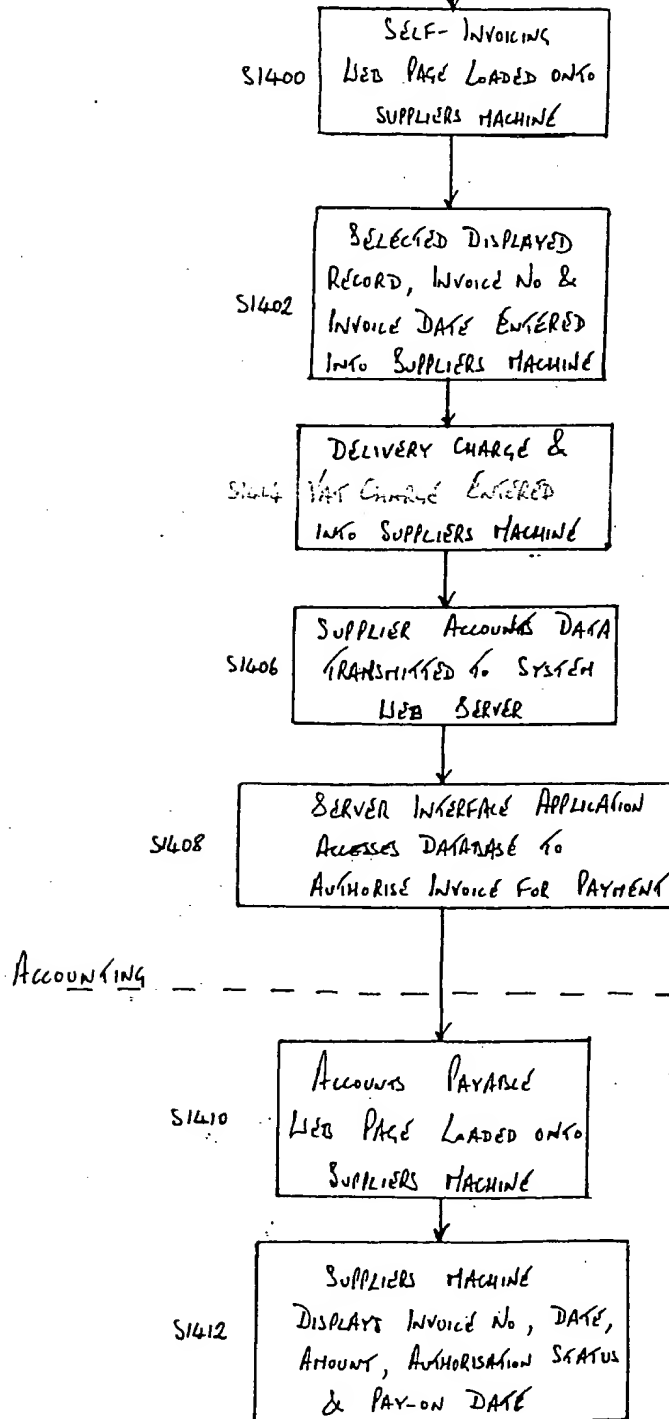 SELF-INVOICING
S1400 WEB PAGE LOADED ONTO
SUPPLIERS MACHINE
SELECTED DISPLAYED
RECORD, INVOICE NO &
S1402 INVOICE DATE ENTERED
INTO SUPPLIERS MACHINE
DELIVERY CHARGE &
VAT CHARGE ENTERED
INTO SUPPLIERS MACHINE
SUPPLIER ACCOUNTS DATA
S1406 TRANSMITTED TO SYSTEM
WEB SERVER
SERVER INTERFACE APPLICATION
S1408 ACCESSES DATABASE TO
AUTHORISE INVOICE FOR PAYMENT
ACCOUNTING
ACCOUNTS PAYABLE
S1410 WEB PAGE LOADED ONTO
SUPPLIERS MACHINE
SUPPLIERS MACHINE
S1412 DISPLAYS INVOICE NO, DATE,
AMOUNT, AUTHORISATION STATUS
& PAY-ON DATE